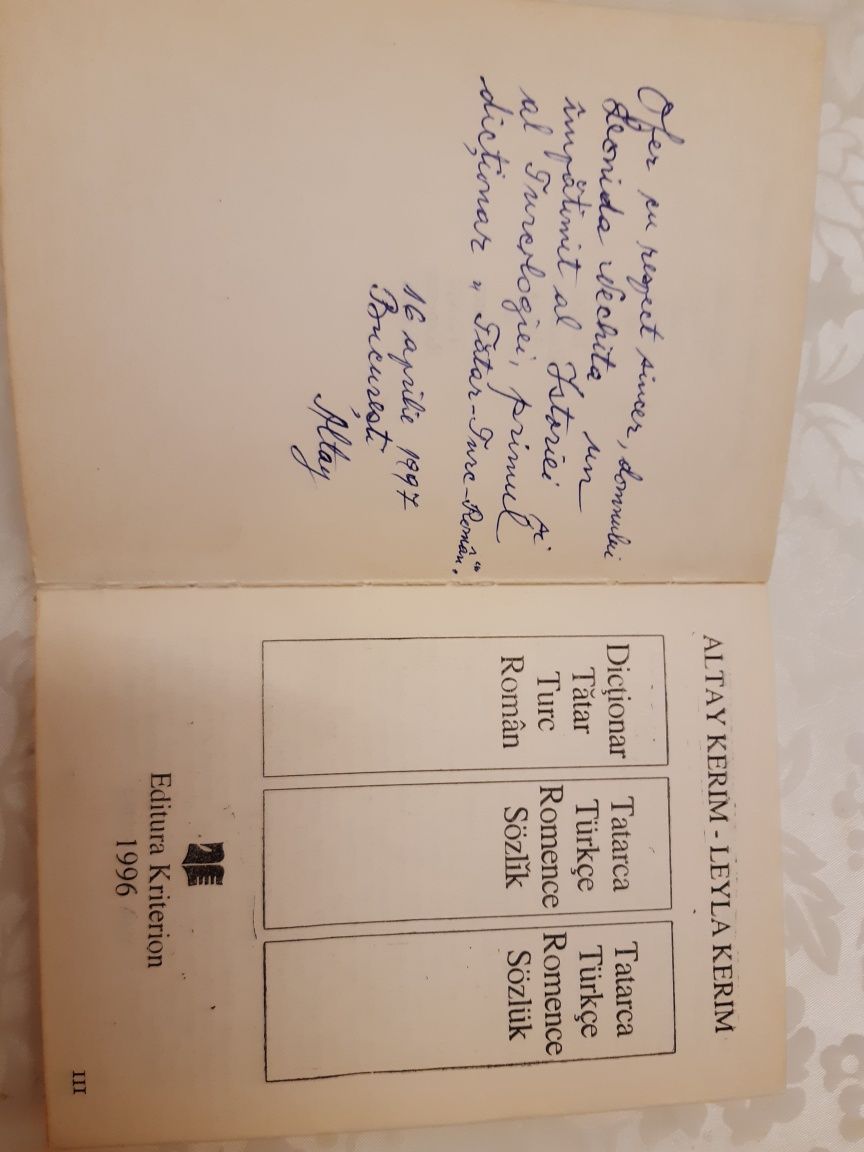 Ofer cu respect sincer, domnului
Leonida Nechita un
împătimit al Istoriei
al Turcologiei, primul
dicționar „Tătar-Turc-Român".
16 aprilie 1997
București
Altay
ALTAY KERIM - LEYLA KERIM
Dicţionar
Tătar
Turc
Român
Tatarca
Türkçe
Romence
Sözlĭk
Tatarca
Türkçe
Romence
Sözlük
Editura Kriterion
1996
III